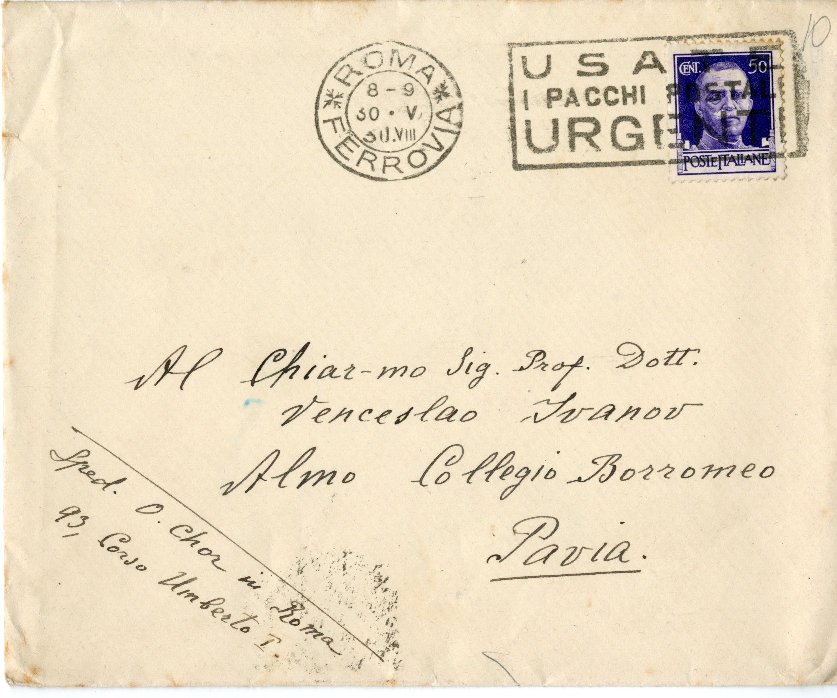 10
ROMA
8-9
30 · V.
30.VIII
FERROVIA
USATE
I PACCHI POSTALI
URGENTI
CENT. 50
POSTE ITALIANE
Al Chiar-mo Sig. Prof. Dott.
Venceslao Ivanov
Almo Collegio Borromeo
Pavia.
Sped. O. Chor in Roma
93, Corso Umberto I.